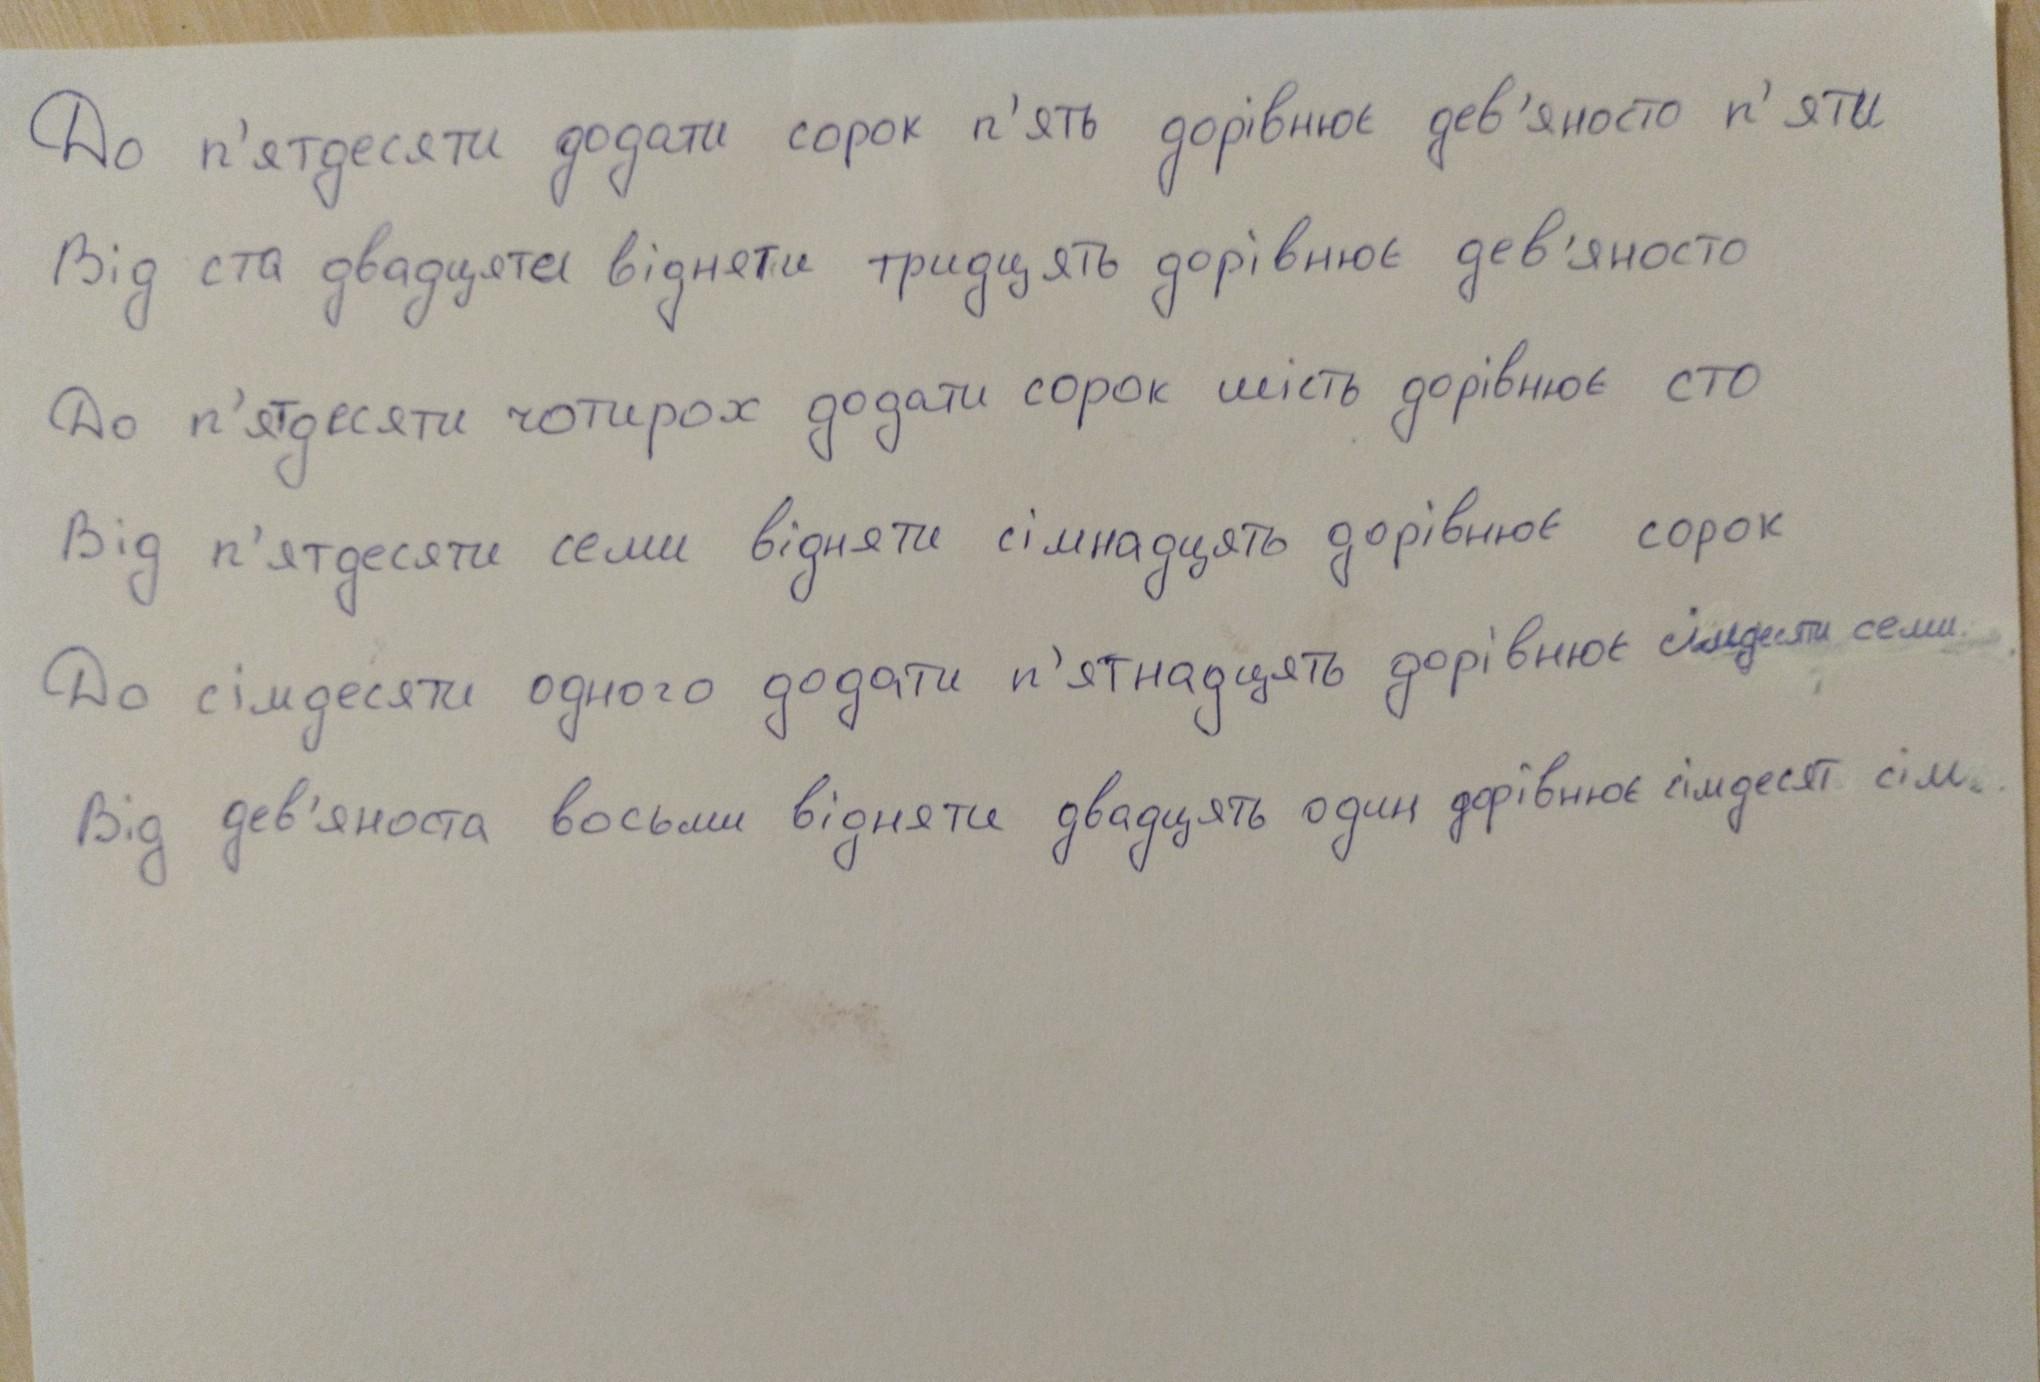 До п'ятдесяти додати сорок п'ять дорівнює дев'яносто п'яти
Від ста двадцяти відняти тридцять дорівнює дев'яносто
До п'ятдесяти чотирох додати сорок шість дорівнює сто
Від п'ятдесяти семи відняти сімнадцять дорівнює сорок
До сімдесяти одного додати п'ятнадцять дорівнює сімдесяти семи.
Від дев'яноста восьми відняти двадцять один дорівнює сімдесят сім.